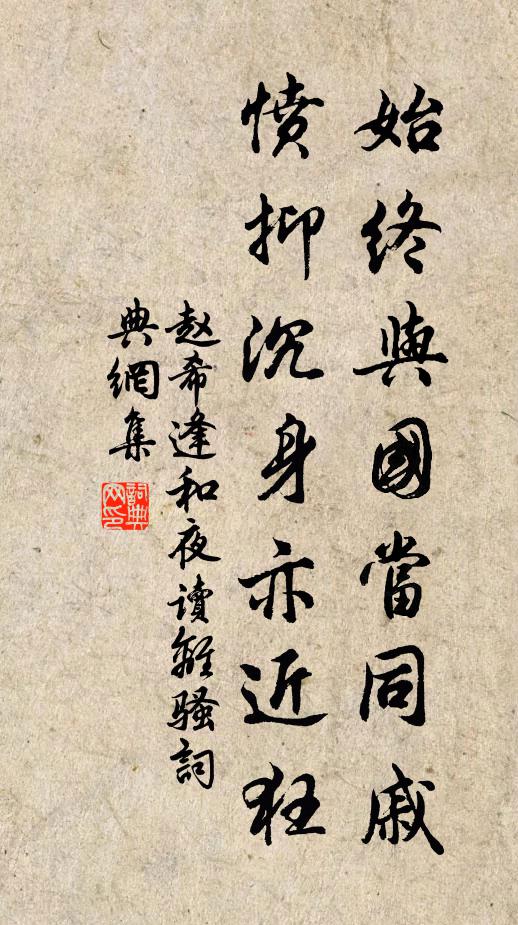 始終與國當同戚
憤抑沉身亦近狂
赵希逢和夜讀離騷詞
典網集
詞典
网印